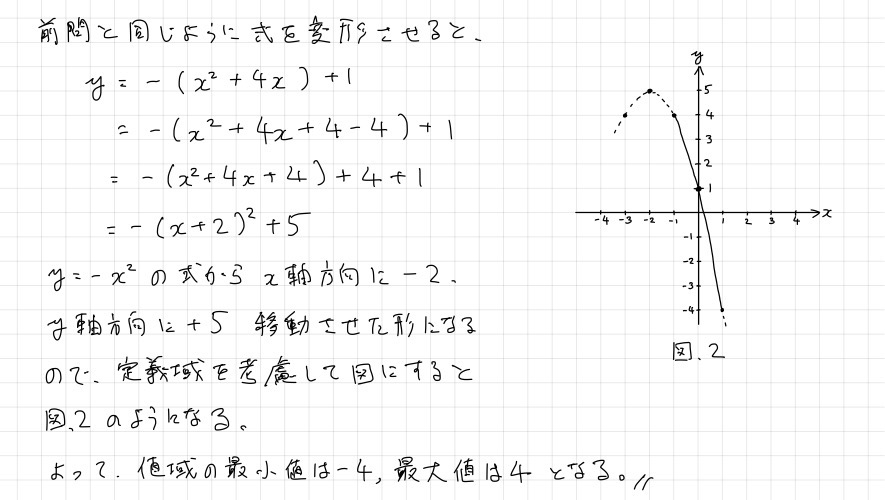 前問と同じように式を変形させると、
y = -(x² + 4x ) + 1
= -(x² + 4x + 4 - 4) + 1
= -(x² + 4x + 4) + 4 + 1
= -(x + 2)² + 5
y = -x² の式から x軸方向に -2、
y軸方向に +5 移動させた形になる
ので、定義域を考慮して図にすると
図.2 のようになる。
よって、値域の最小値は -4, 最大値は 4 となる。//
y
5
4
3
2
1
-4 -3 -2 -1 1 2 3 4 x
-1
-2
-3
-4
図.2